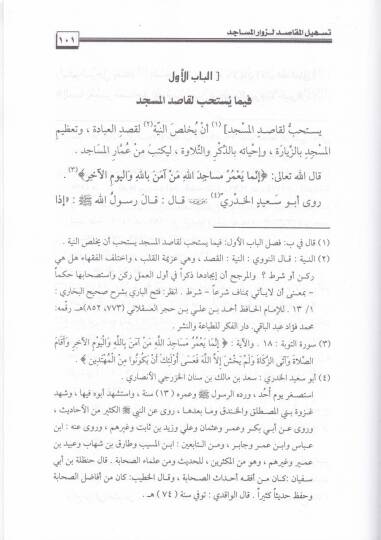 تسهيل المقاصد لزوار المساجد
١٠١
[ الباب الأول
فيما يُستحب لقاصد المسجد
يستحبُّ لقاصدِ المسجدِ ](١) أنْ يُخلصَ النيةَ(٢) لقصدِ العبادة ، وتعظيمِ
المسجدِ بالزِّيارةِ ، وإحيائهِ بالذِّكْرِ والتِّلاوة ، ليكتبَ منْ عُمَّارِ المساجدِ .
قال الله تعالى: ﴿إنَّما يَعْمُرُ مساجدَ اللهِ مَنْ آمَنَ باللهِ واليومِ الآخرِ﴾(٣).
روى أبو سعيدٍ الخدْري(٤) قال : قالَ رسولُ الله ﷺ : «إذا
(١) قال في ب: فصل الباب الأول: فيما يستحب لقاصد المسجد يستحب أن يخلص النية .
(٢) النية : قال النووي : النية : القصد ، وهي عزيمة القلب ، واختلف الفقهاء هل هي
ركن أو شرط ؟ والمرجح أن إيجادها ذكراً في أول العمل ركن واستصحابها حكماً
– بمعنى أن لا يأتي بمناف شرعاً – شرط . انظر: فتح الباري بشرح صحيح البخاري :
١/ ١٣ . للإمام الحافظ أحمد بن علي بن حجر العسقلاني (٧٧٣، ٨٥٢)هـ رقمه:
محمد فؤاد عبد الباقي. دار الفكر للطباعة والنشر .
(٣) سورة التوبة : ١٨ . والآية : ﴿ إِنَّمَا يَعْمُرُ مَسَاجِدَ اللَّهِ مَنْ آمَنَ بِاللَّهِ وَالْيَوْمِ الْآخِرِ وَأَقَامَ
الصَّلَاةَ وَآتَى الزَّكَاةَ وَلَمْ يَخْشَ إِلَّا اللَّهَ فَعَسَى أُوْلَئِكَ أَنْ يَكُونُوا مِنْ الْمُهْتَدِينَ ﴾ .
(٤) أبو سعيد الخدري : سعد بن مالك بن سنان الخزرجي الأنصاري .
استصغر يوم أُحد ، ورده الرسول ﷺ وعمره (١٣) سنة ، واستشهد أبوه فيها ، وشهد
غزوة بني المصطلق والخندق وما بعدهما ، روى عن النبي ﷺ الكثير من الأحاديث ،
وروى عن أبي بكر وعمر وعثمان وعلي وزيد بن ثابت وغيرهم ، وروى عنه : ابن
عباس وابن عمر وجابر ، ومن التابعين : ابن المسيب وطارق بن شهاب وعبيد بن
عمير وغيرهم ، وهو من المكثرين ، للحديث ومن علماء الصحابة . قال حنظلة بن أبي
سفيان :كان من أفقه أحداث الصحابة ، وقال الخطيب: كان من أفاضل الصحابة
وحفظ حديثاً كثيراً . قال الواقدي : توفي سنة ( ٧٤ ) هـ .